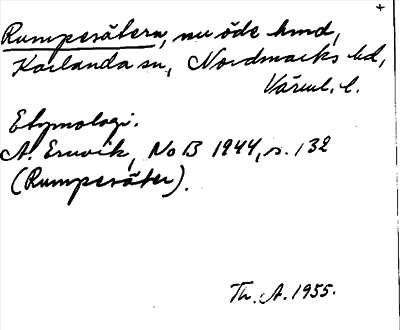 +
Rumperätern, nu öde hmd,
Karlanda sn, Nordmarks hd,
Värml. l.
Etymologi.
A. Ernvik, NoB 1944, s. 132
(Rumperäter).
Th. A. 1955.